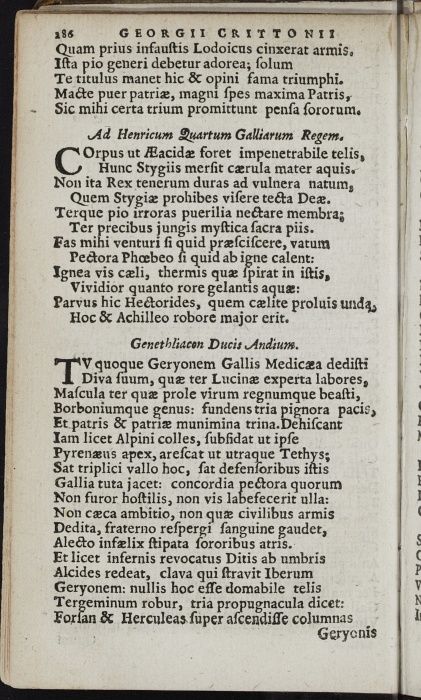 286 GEORGII CRITTONII
Quam prius infauſtis Lodoicus cinxerat armis.
Iſta pio generi debetur adorea; ſolum
Te titulus manet hic & opini fama triumphi.
Macte puer patriæ, magni ſpes maxima Patris,
Sic mihi certa trium promittunt penſa ſororum.
Ad Henricum Quartum Galliarum Regem.
COrpus ut Æacidæ foret impenetrabile telis,
Hunc Stygiis merſit cærula mater aquis.
Non ita Rex tenerum duras ad vulnera natum,
Quem Stygiæ prohibes viſere tecta Deæ.
Terque pio irroras puerilia nectare membra;
Ter precibus jungis myſtica ſacra piis.
Fas mihi venturi ſi quid præſciſcere, vatum
Pectora Phœbeo ſi quid ab igne calent:
Ignea vis cæli, thermis quæ ſpirat in iſtis,
Vividior quanto rore gelantis aquæ:
Parvus hic Hectorides, quem cælite proluis unda,
Hoc & Achilleo robore major erit.
Genethliacon Ducis Andium.
TV quoque Geryonem Gallis Medicæa dediſti
Diva ſuum, quæ ter Lucinæ experta labores,
Maſcula ter quæ prole virum regnumque beaſti,
Borboniumque genus: fundens tria pignora pacis,
Et patris & patriæ munimina trina. Dehiſcant
Iam licet Alpini colles, ſubſidat ut ipſe
Pyrenæus apex, areſcat ut utraque Tethys;
Sat triplici vallo hoc, ſat defenſoribus iſtis
Gallia tuta jacet: concordia pectora quorum
Non furor hoſtilis, non vis labefecerit ulla:
Non cæca ambitio, non quæ civilibus armis
Dedita, fraterno reſpergi ſanguine gaudet,
Alecto infælix ſtipata ſororibus atris.
Et licet infernis revocatus Ditis ab umbris
Alcides redeat, clava qui ſtravit Iberum
Geryonem: nullis hoc eſſe domabile telis
Tergeminum robur, tria propugnacula dicet:
Forſan & Herculeas ſuper aſcendiſſe columnas
Geryonis